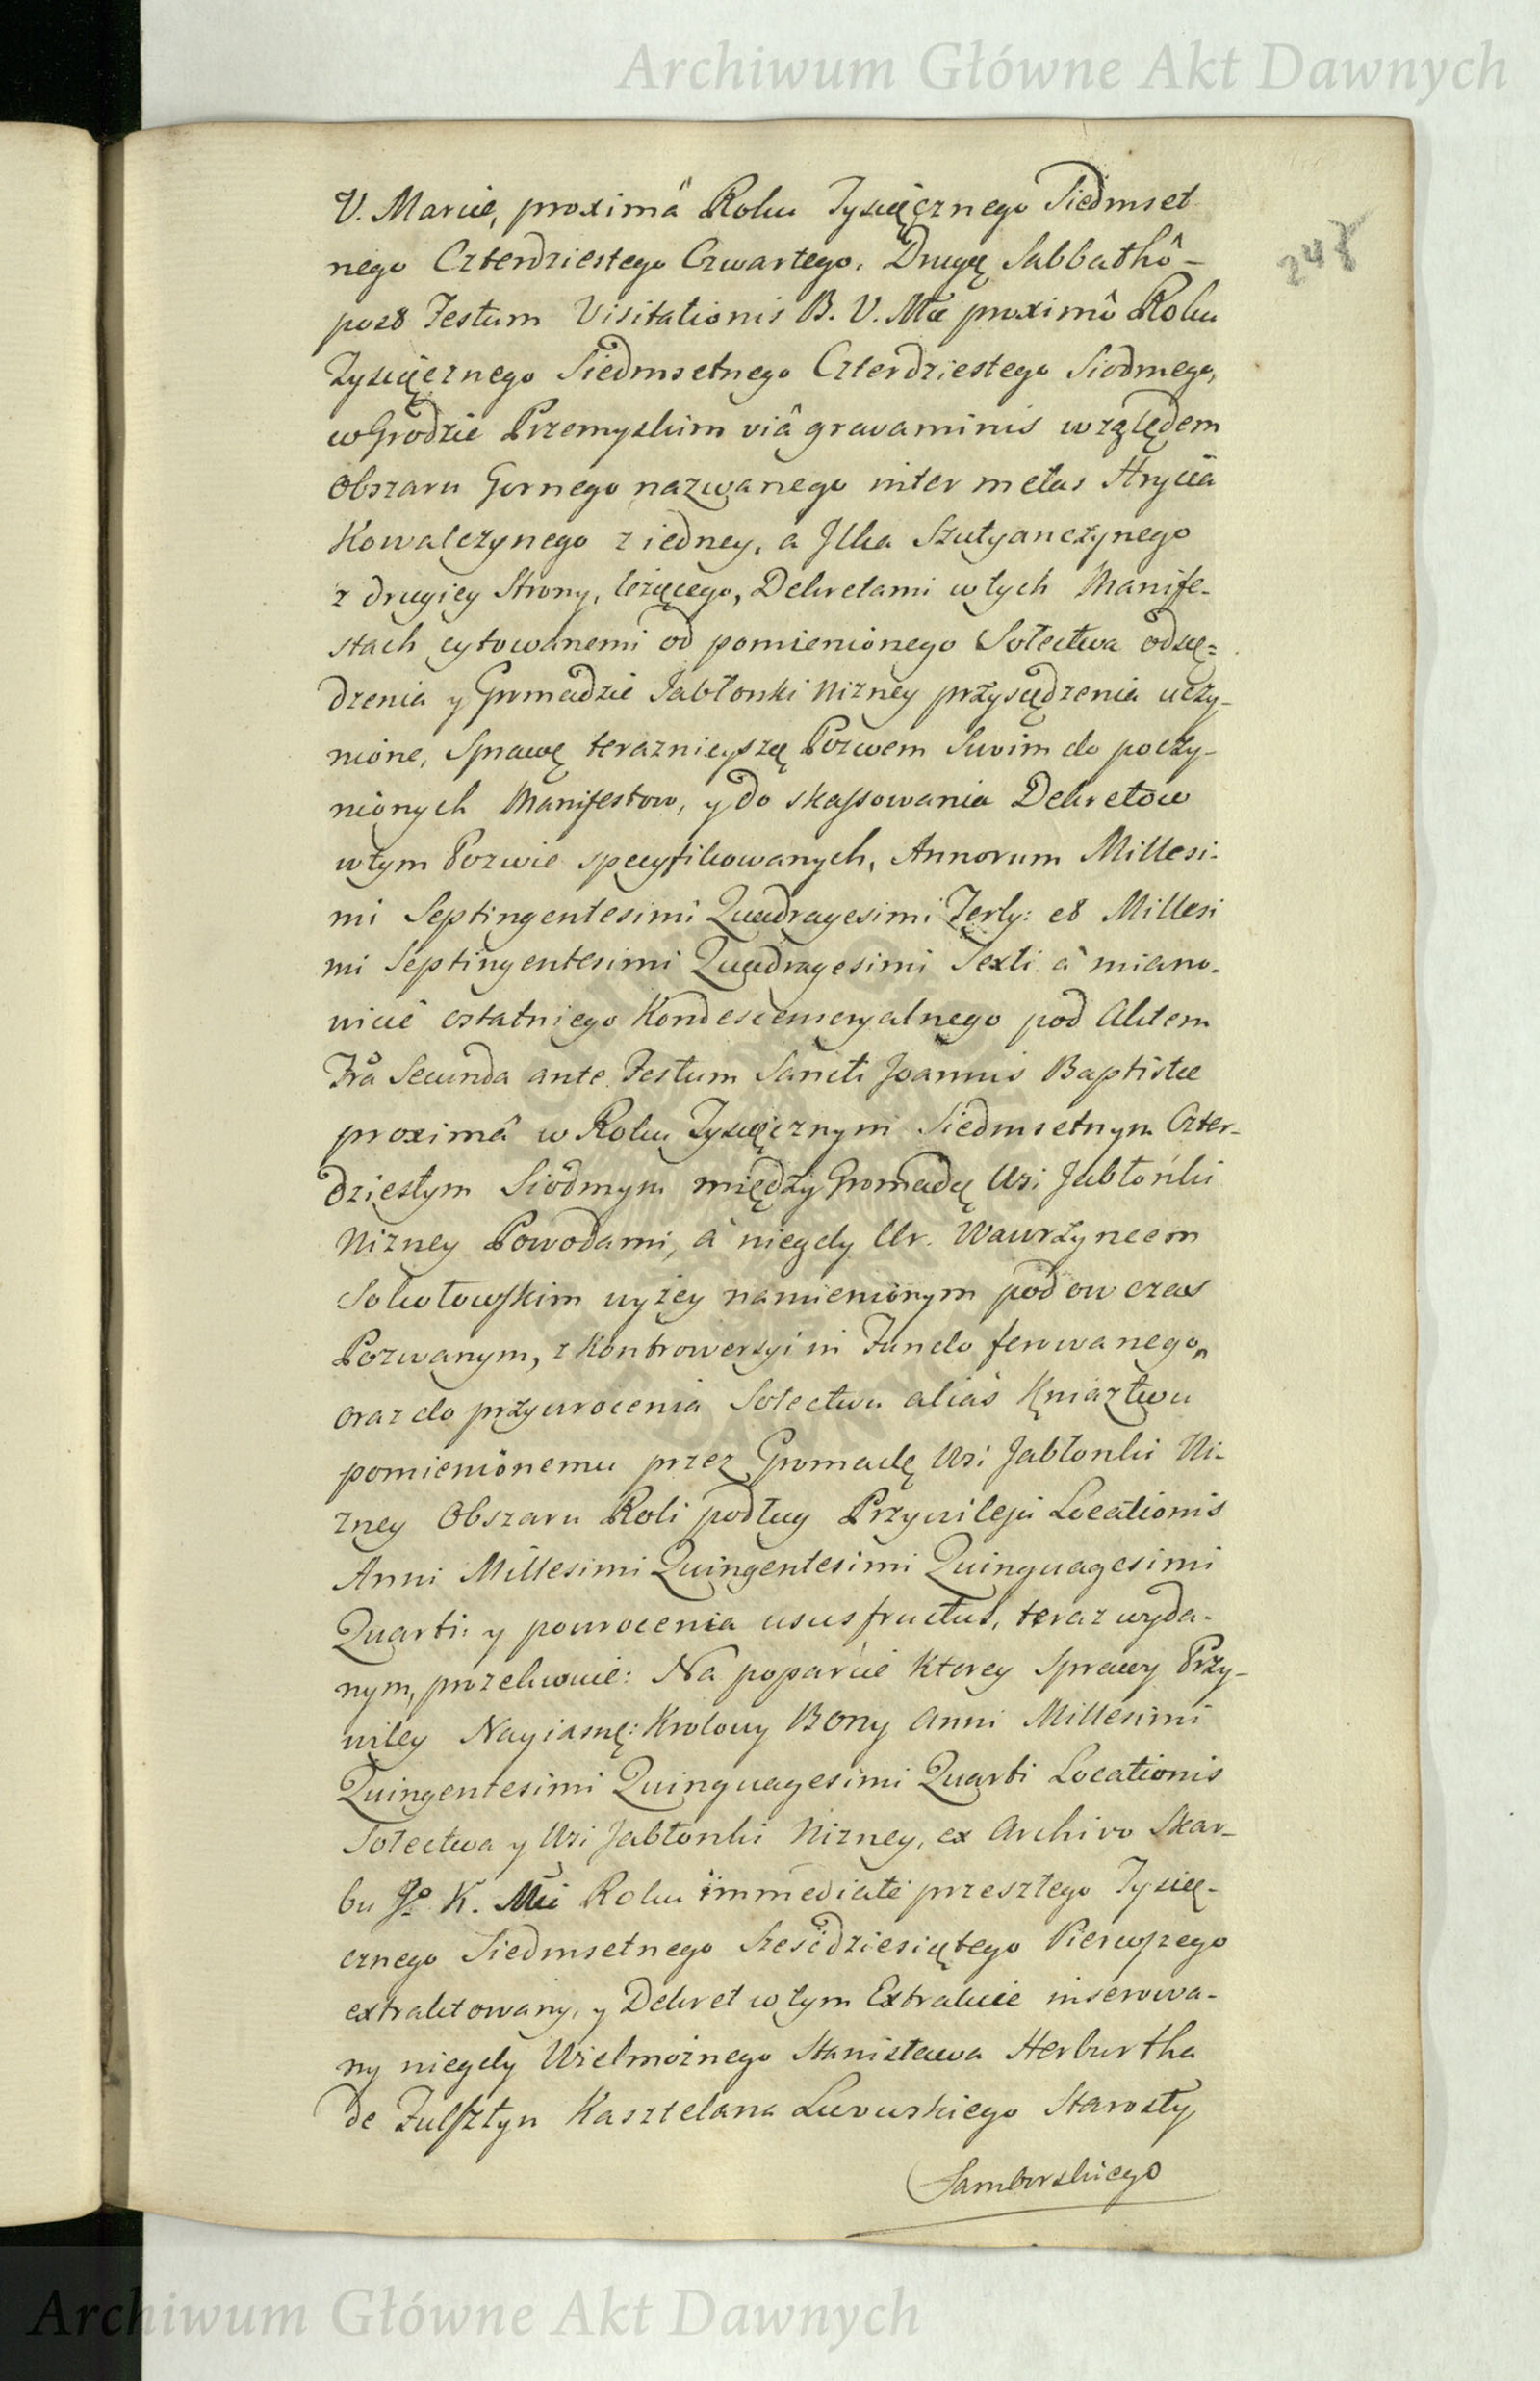 Archiwum Główne Akt Dawnych
248
V. Mariæ, proximâ Roku Tysiącznego Siedmset
nego Czterdziestego Czwartego, Drugą Sabbathô
post Festum Visitationis B. V. Mæ proximô Roku
Tysiącznego Siedmsetnego Czterdziestego Siodmego,
w Grodzie Przemyskim viâ gravaminis względem
Obszaru Gornego nazwanego inter metas Hrycia
Kowalczynego z iedney, a Ilka Szutyanczynego
z drugiey Strony, leżącego, Dekretami w tych Manife-
stach cytowanemi od pomienionego Sołectwa odsą=
dzenia y Gromadzie Jabłonki Nizney przysądzenia uczy-
nione, Sprawę teraznieyszą Pozwem Swoim do poczy-
nionych Manifestow, y do skassowania Dekretow
w tym Pozwie specyfikowanych, Annorum Millesi-
mi Septingentesimi Quadragesimi Terty: et Millesi
mi Septingentesimi Quadragesimi Sexti. à miano-
wicie ostatniego Kondescensyalnego pod Aktem
Fra Secunda ante Festum Sancti Joannis Baptistæ
proximâ w Roku Tysiącznym Siedmsetnym Czter-
dziestym Siodmym między Gromadą Wsi Jabłońki
Nizney Powodami, à niegdy Ur. Wawrzyncem
Sokołowskim wyżey namienionym pod ow czas
Pozwanym, z Kontrowersyi in Fundo ferowanego,
oraz do przywrocenia Sołectwu alias Kniaztwu
pomienionemu przez Gromadę Wsi Jabłonki Ni-
zney Obszaru Roli podług Przywileju Locationis
Anni Millesimi Quingentesimi Quinquagesimi
Quarti: y powrocenia ususfructus, teraz wyda-
nym, przekonie: Na poparcie ktorey Sprawy Przy-
wiley Nayiasnę: Krolowy Bony Anni Millesimi
Quingentesimi Quinquagesimi Quarti Locationis
Sołectwa y Wsi Jabłonki Nizney, ex Archivo Skar-
bu Jo K. Mci Roku immediate przeszłego Tysią-
cznego Siedmsetnego Sześćdziesiątego Pierwszego
extraktowany, y Dekret w tym Extrakcie inserowa-
ny niegdy Wielmożnego Stanisława Herburtha
de Fulsztyn Kasztelana Lwowskiego Starosty
Samborskiego
Archiwum Główne Akt Dawnych